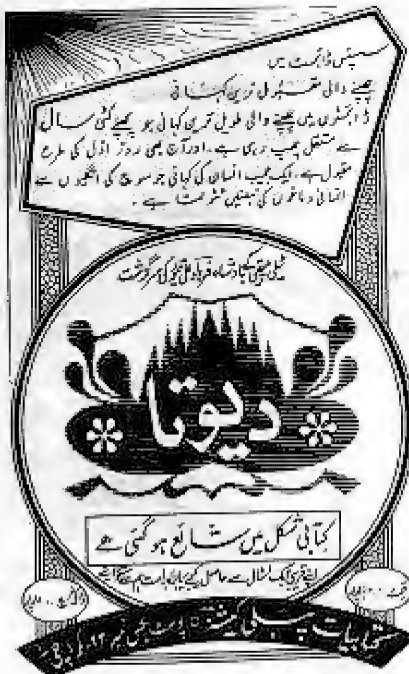 سسپنس ڈائجسٹ میں
چھپنے والی مقبول ترین کہانی
ڈائجسٹوں میں چھپنے والی طویل ترین کہانی جو پچھلے کئی سال
سے مستقل چھپ رہی ہے، اور آج بھی روزِ اوّل کی طرح
مقبول ہے، ایک عجیب انسان کی کہانی جو سوچ کی انگلیوں سے
انسانی دماغوں کی نبضیں ٹٹولتا ہے۔
ٹیلی پیتھی کے بادشاہ، فرہاد علی تیمور کی سرگزشت
دیوتا
کتابی شکل میں شائع ہو گئی ہے
اپنے قریبی بک اسٹال سے حاصل کیجئے یا براہ راست ہم سے منگوائیے
قیمت
ڈاک خرچ
کتابیات پبلی کیشنز پوسٹ بکس نمبر ۲۳ کراچی